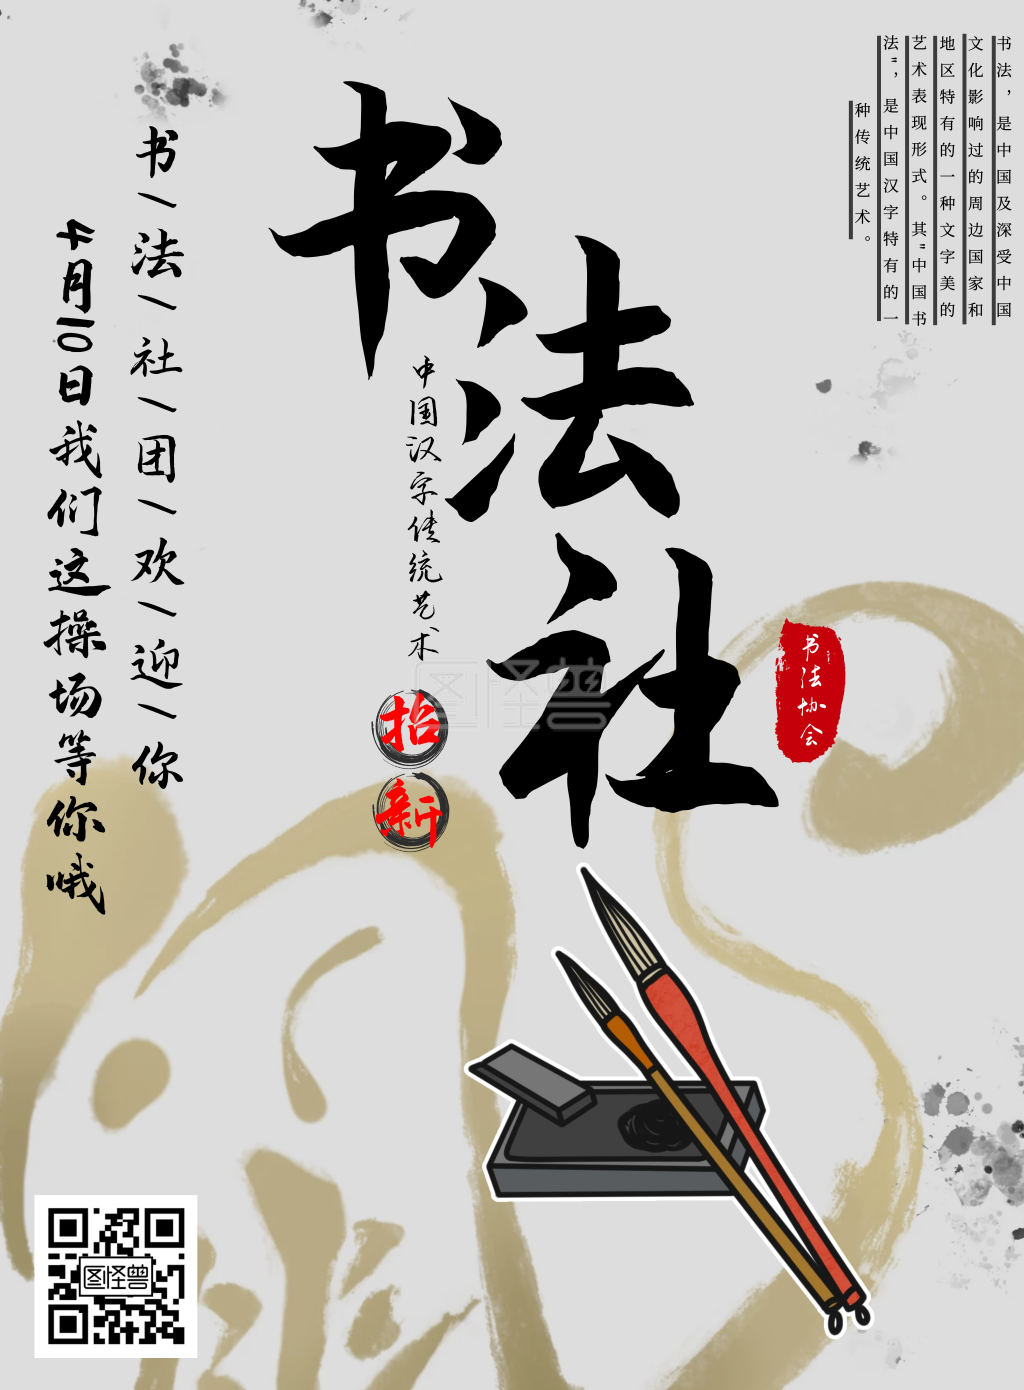 书法，是中国及深受中国
文化影响过的周边国家和
地区特有的一种文字美的
艺术表现形式。其"中国书
法"，是中国汉字特有的一
种传统艺术。
书法社
书法协会
中国汉字传统艺术
招新
书/法/社/团/欢/迎/你
4月10日我们这操场等你哦
图怪兽
图怪兽